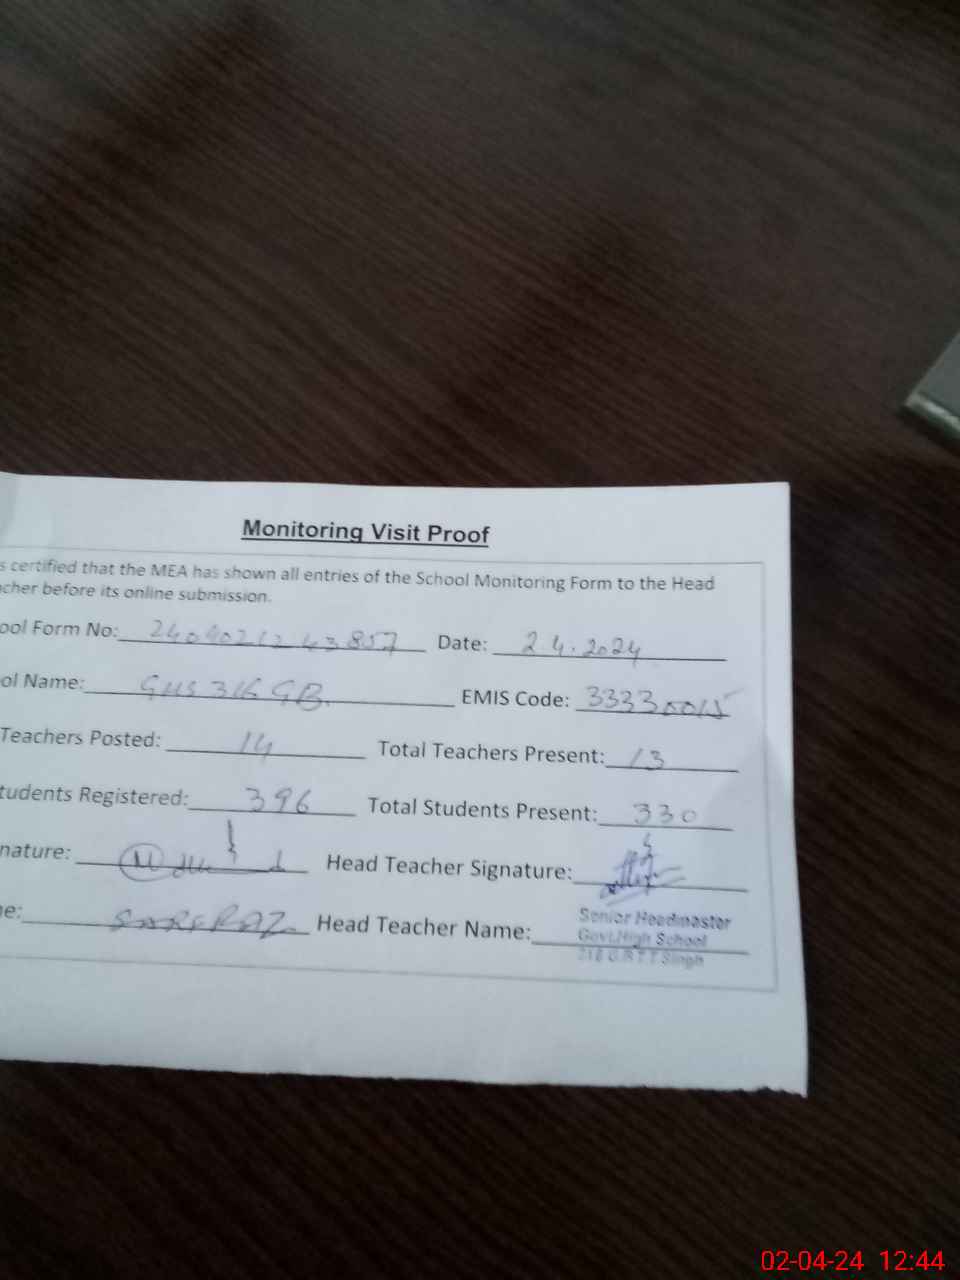 Monitoring Visit Proof
s certified that the MEA has shown all entries of the School Monitoring Form to the Head
cher before its online submission.
ool Form No: 2404021243857 Date: 2.4.2024
ol Name: GHS 316 GB. EMIS Code: 33330015
Teachers Posted: 14 Total Teachers Present: 13
tudents Registered: 396 Total Students Present: 330
nature: Head Teacher Signature:
e: SARFRAZ Head Teacher Name:
Senior Headmaster
Govt.High School
316 G.B T.T.Singh
02-04-24 12:44